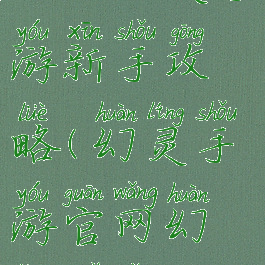 yóu xīn shǒu gōng
游新手攻
lüè huàn líng shǒu
略(幻灵手
yóu guān wǎng huàn
游官网幻